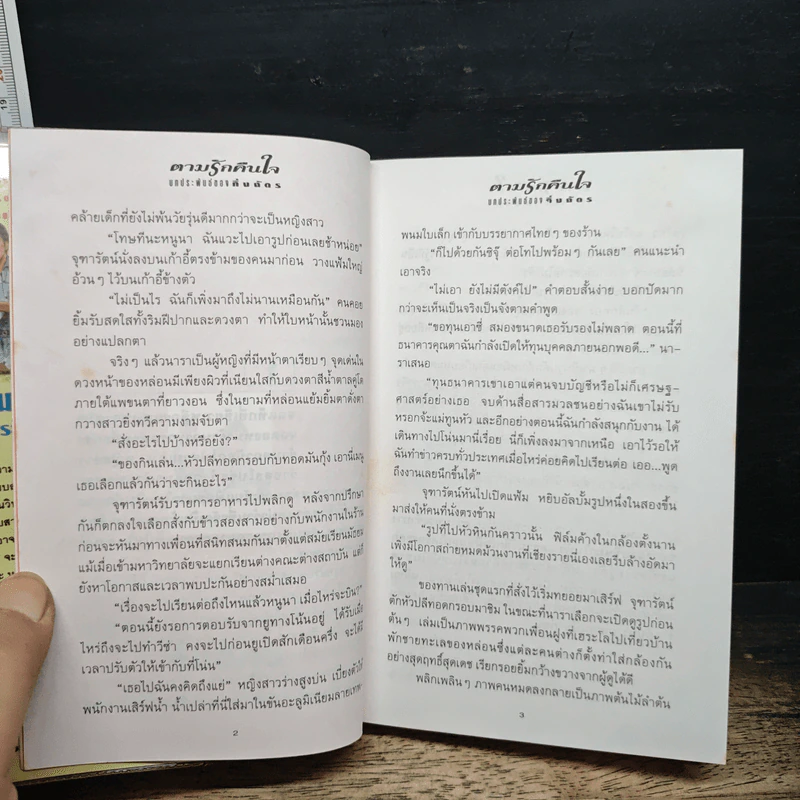 ตามรักคืนใจ
บทประพันธ์ของ กิ่งฉัตร
คล้ายเด็กที่ยังไม่พ้นวัยรุ่นดีมากกว่าจะเป็นหญิงสาว
“โทษทีนะหนูนา ฉันแวะไปเอารูปก่อนเลยช้าหน่อย”
จุฑารัตน์นั่งลงบนเก้าอี้ตรงข้ามของคนมาก่อน วางแฟ้มใหญ่
อ้วนๆ ไว้บนเก้าอี้ข้างตัว
“ไม่เป็นไร ฉันก็เพิ่งมาถึงไม่นานเหมือนกัน” คนคอย
ยิ้มรับสดใสทั้งริมฝีปากและดวงตา ทำให้ใบหน้านั้นชวนมอง
อย่างแปลกตา
จริงๆ แล้วนาราเป็นผู้หญิงที่มีหน้าตาเรียบๆ จุดเด่นใน
ดวงหน้าของหล่อนมีเพียงผิวที่เนียนใสกับดวงตาสีน้ำตาลคู่โต
ภายใต้แพขนตาที่ยาวงอน ซึ่งในยามที่หล่อนแย้มยิ้มตาดั่งตา
กวางสาวยิ่งทวีความงามจับตา
“สั่งอะไรไปบ้างหรือยัง?”
“ของกินเล่น...หัวปลีทอดกรอบกับทอดมันกุ้ง เอานี่เมนู
เธอเลือกแล้วกันว่าจะกินอะไร”
จุฑารัตน์รับรายการอาหารไปพลิกดู หลังจากปรึกษา
กันก็ตกลงใจเลือกสั่งกับข้าวสองสามอย่างกับพนักงานในร้าน
ก่อนจะหันมาทางเพื่อนที่สนิทสนมกันมาตั้งแต่สมัยเรียนมัธยม
แม้เมื่อเข้ามหาวิทยาลัยจะแยกเรียนต่างคณะต่างสถาบัน แต่ก็
ยังหาโอกาสและเวลาพบปะกันอย่างสม่ำเสมอ
“เรื่องจะไปเรียนต่อถึงไหนแล้วหนูนา เมื่อไหร่จะบิน?”
“ตอนนี้ยังรอการตอบรับจากยูทางโน้นอยู่ ได้รับเมื่อ
ไหร่ถึงจะไปทำวีซ่า คงจะไปก่อนยูเปิดสักเดือนครึ่ง จะได้มี
เวลาปรับตัวให้เข้ากับที่โน่น”
“เธอไปฉันคงคิดถึงแย่” หญิงสาวร่างสูงบ่น เบี่ยงตัวให้
พนักงานเสิร์ฟน้ำ น้ำเปล่าที่นี่ใส่มาในขันอะลูมิเนียมลายเทพ
2
ตามรักคืนใจ
บทประพันธ์ของ กิ่งฉัตร
พนมใบเล็ก เข้ากับบรรยากาศไทยๆ ของร้าน
“ก็ไปด้วยกันซิจุ๊ ต่อโทไปพร้อมๆ กันเลย” คนแนะนำ
เอาจริง
“ไม่เอา ยังไม่มีตังค์ไป” คำตอบสั้นง่าย บอกปัดมาก
กว่าจะเห็นเป็นจริงเป็นจังตามคำพูด
“ขอทุนเอาซี่ สมองขนาดเธอรับรองไม่พลาด ตอนนี้ที่
ธนาคารคุณตาฉันกำลังเปิดให้ทุนบุคคลภายนอกพอดี...” นา-
ราเสนอ
“ทุนธนาคารเขาเอาแต่คนจบบัญชีหรือไม่ก็เศรษฐ-
ศาสตร์อย่างเธอ จบด้านสื่อสารมวลชนอย่างฉันเขาไม่รับ
หรอกจ้ะแม่ทูนหัว และอีกอย่างตอนนี้ฉันกำลังสนุกกับงาน ได้
เดินทางไปโน่นมานี่เรื่อย นี่ก็เพิ่งลงมาจากเหนือ เอาไว้รอให้
ฉันทำข่าวครบทั่วประเทศเมื่อไหร่ค่อยคิดไปเรียนต่อ เออ...พูด
ถึงงานเลยนึกขึ้นได้”
จุฑารัตน์หันไปเปิดแฟ้ม หยิบอัลบั้มรูปหนึ่งในสองขึ้น
มาส่งให้คนที่นั่งตรงข้าม
“รูปที่ไปหัวหินกันคราวนั้น ฟิล์มค้างในกล้องตั้งนาน
เพิ่งมีโอกาสถ่ายหมดม้วนงานที่เชียงรายนี่เองเลยรีบล้างอัดมา
ให้ดู”
ของทานเล่นชุดแรกที่สั่งไว้เริ่มทยอยมาเสิร์ฟ จุฑารัตน์
ตักหัวปลีทอดกรอบมาชิม ในขณะที่นาราเลือกจะเปิดดูรูปก่อน
ต้นๆ เล่มเป็นภาพพรรคพวกเพื่อนฝูงที่เฮระโลไปเที่ยวบ้าน
พักชายทะเลของหล่อนซึ่งแต่ละคนต่างก็ตั้งท่าใส่กล้องกัน
อย่างสุดฤทธิ์สุดเดช เรียกรอยยิ้มกว้างขวางจากผู้ดูได้ดี
พลิกเพลินๆ ภาพคนหมดลงกลายเป็นภาพต้นไม้ลำต้น
3